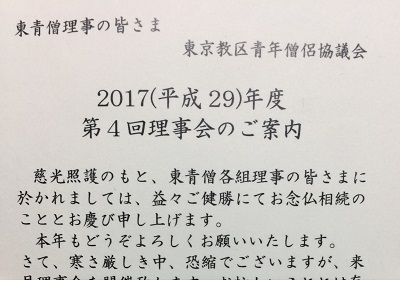 東青僧理事の皆さま
東京教区青年僧侶協議会
2017(平成29)年度
第4回理事会のご案内
慈光照護のもと、東青僧各組理事の皆さまに
於かれましては、益々ご健勝にてお念仏相続の
こととお慶び申し上げます。
本年もどうぞよろしくお願いいたします。
さて、寒さ厳しき中、恐縮でございますが、来